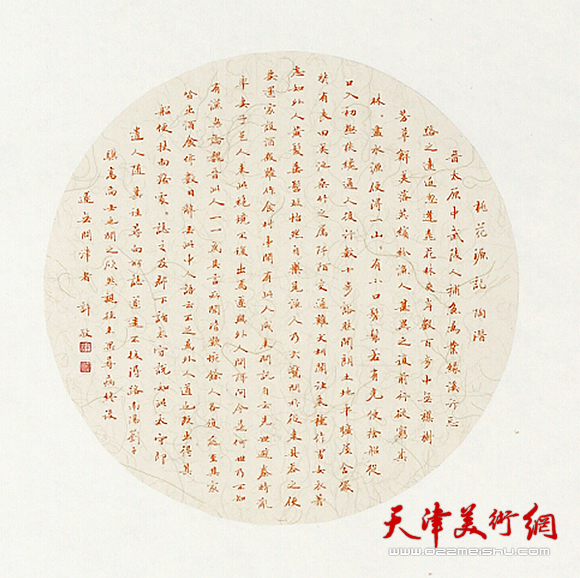 桃花源記 陶潛
晉太原中武陵人捕魚為業緣溪行忘
路之遠近忽逢桃花林夾岸數百步中無雜樹
芳草鮮美落英繽紛漁人甚異之復前行欲窮其
林〻盡水源便得一山〻有小口髣髴若有光便捨船從
口入初極狹纔通人復行數十步豁然開朗土地平曠屋舍儼
然有良田美池桑竹之屬阡陌交通雞犬相聞往來種作男女衣著
悉如外人黃髮垂髫並怡然自樂見漁人乃大驚問所從來具答之便
要還家設酒殺雞作食村中聞有此人咸來問訊自云先世避秦時亂
率妻子邑人來此絕境不復出焉遂與外人間隔問今是何世乃不知
有漢無論魏晉此人一一為具言所聞皆歎惋餘人各復延至其家
皆出酒食停數日辭去此中人語云不足為外人道也既出得其
船便扶向路處〻誌之及郡下詣太守說如此太守即
遣人隨其往尋向所誌遂迷不復得路南陽劉子
驥高尚士也聞之欣然規往未果尋病終後
遂無問津者 許敬
天津美術網
www.022meishu.com